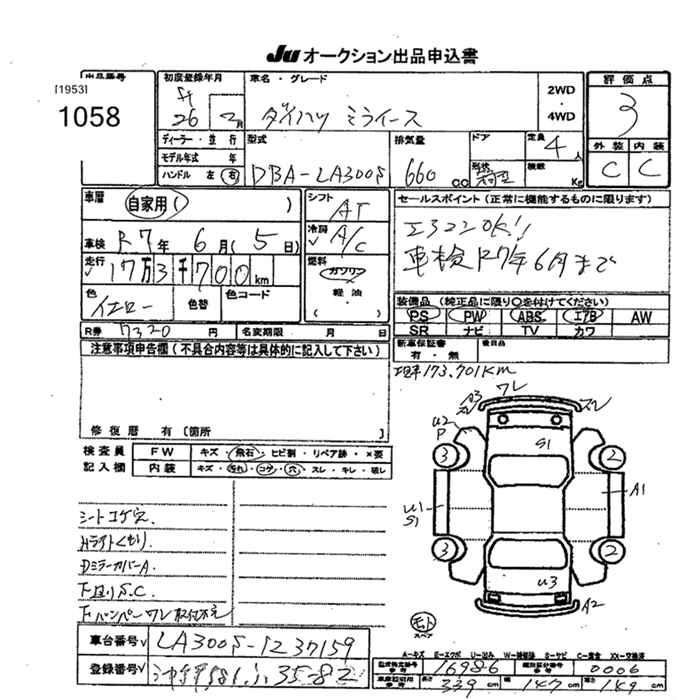 Ju オークション出品申込書
出品番号
[1953]
1058
初度登録年月
26 年 2 月
車名・グレード
ダイハツ ミライース
2WD
・
4WD
評価点
3
外装 内装
C C
ディーラー・並行
モデル年式 年
ハンドル 左 右
型式
DBA-LA300S
排気量
660 cc
ドア
形状
定員
4 人
積載
Kg
車歴
自家用( )
車検 R7年 6月( 5日)
走行 17万3千700km
色
イエロー
色替
色コード
R券 7320 円
名変期限 月 日
シフト
AT
冷房
A/C
燃料
ガソリン
軽油
( )
セールスポイント(正常に機能するものに限ります)
エアコンOK!!
車検R7年6月まで
装備品(純正品に限り○を付けてください)
PS PW ABS エアB AW
SR ナビ TV カワ
新車保証書
有・無
後日品
注意事項申告欄(不具合内容等は具体的に記入して下さい)
修復歴 有(箇所
173,701km
ワレ
A3
ズレ
ズレ
U2
P
S1
3
2
U1
S1
A1
3
2
U3
A2
検査員
記入欄
FW キズ・飛石・ヒビ割・リペア跡・×要
内装 キズ・汚れ・コゲ・穴・スレ・キレ・破レ
シートコゲ穴.
Hライトくもり.
DミラーカバーA.
下回りS.C.
FバンパーワレR取付不良
モト
スペア
車台番号 LA300S-1237159
登録番号 581 35-82
A-キズ E-エクボ U-凹み W-補修跡 S-サビ C-腐食 XX-交換済
16986
0006
長さ 339 cm 幅 147 cm 高さ 149 cm